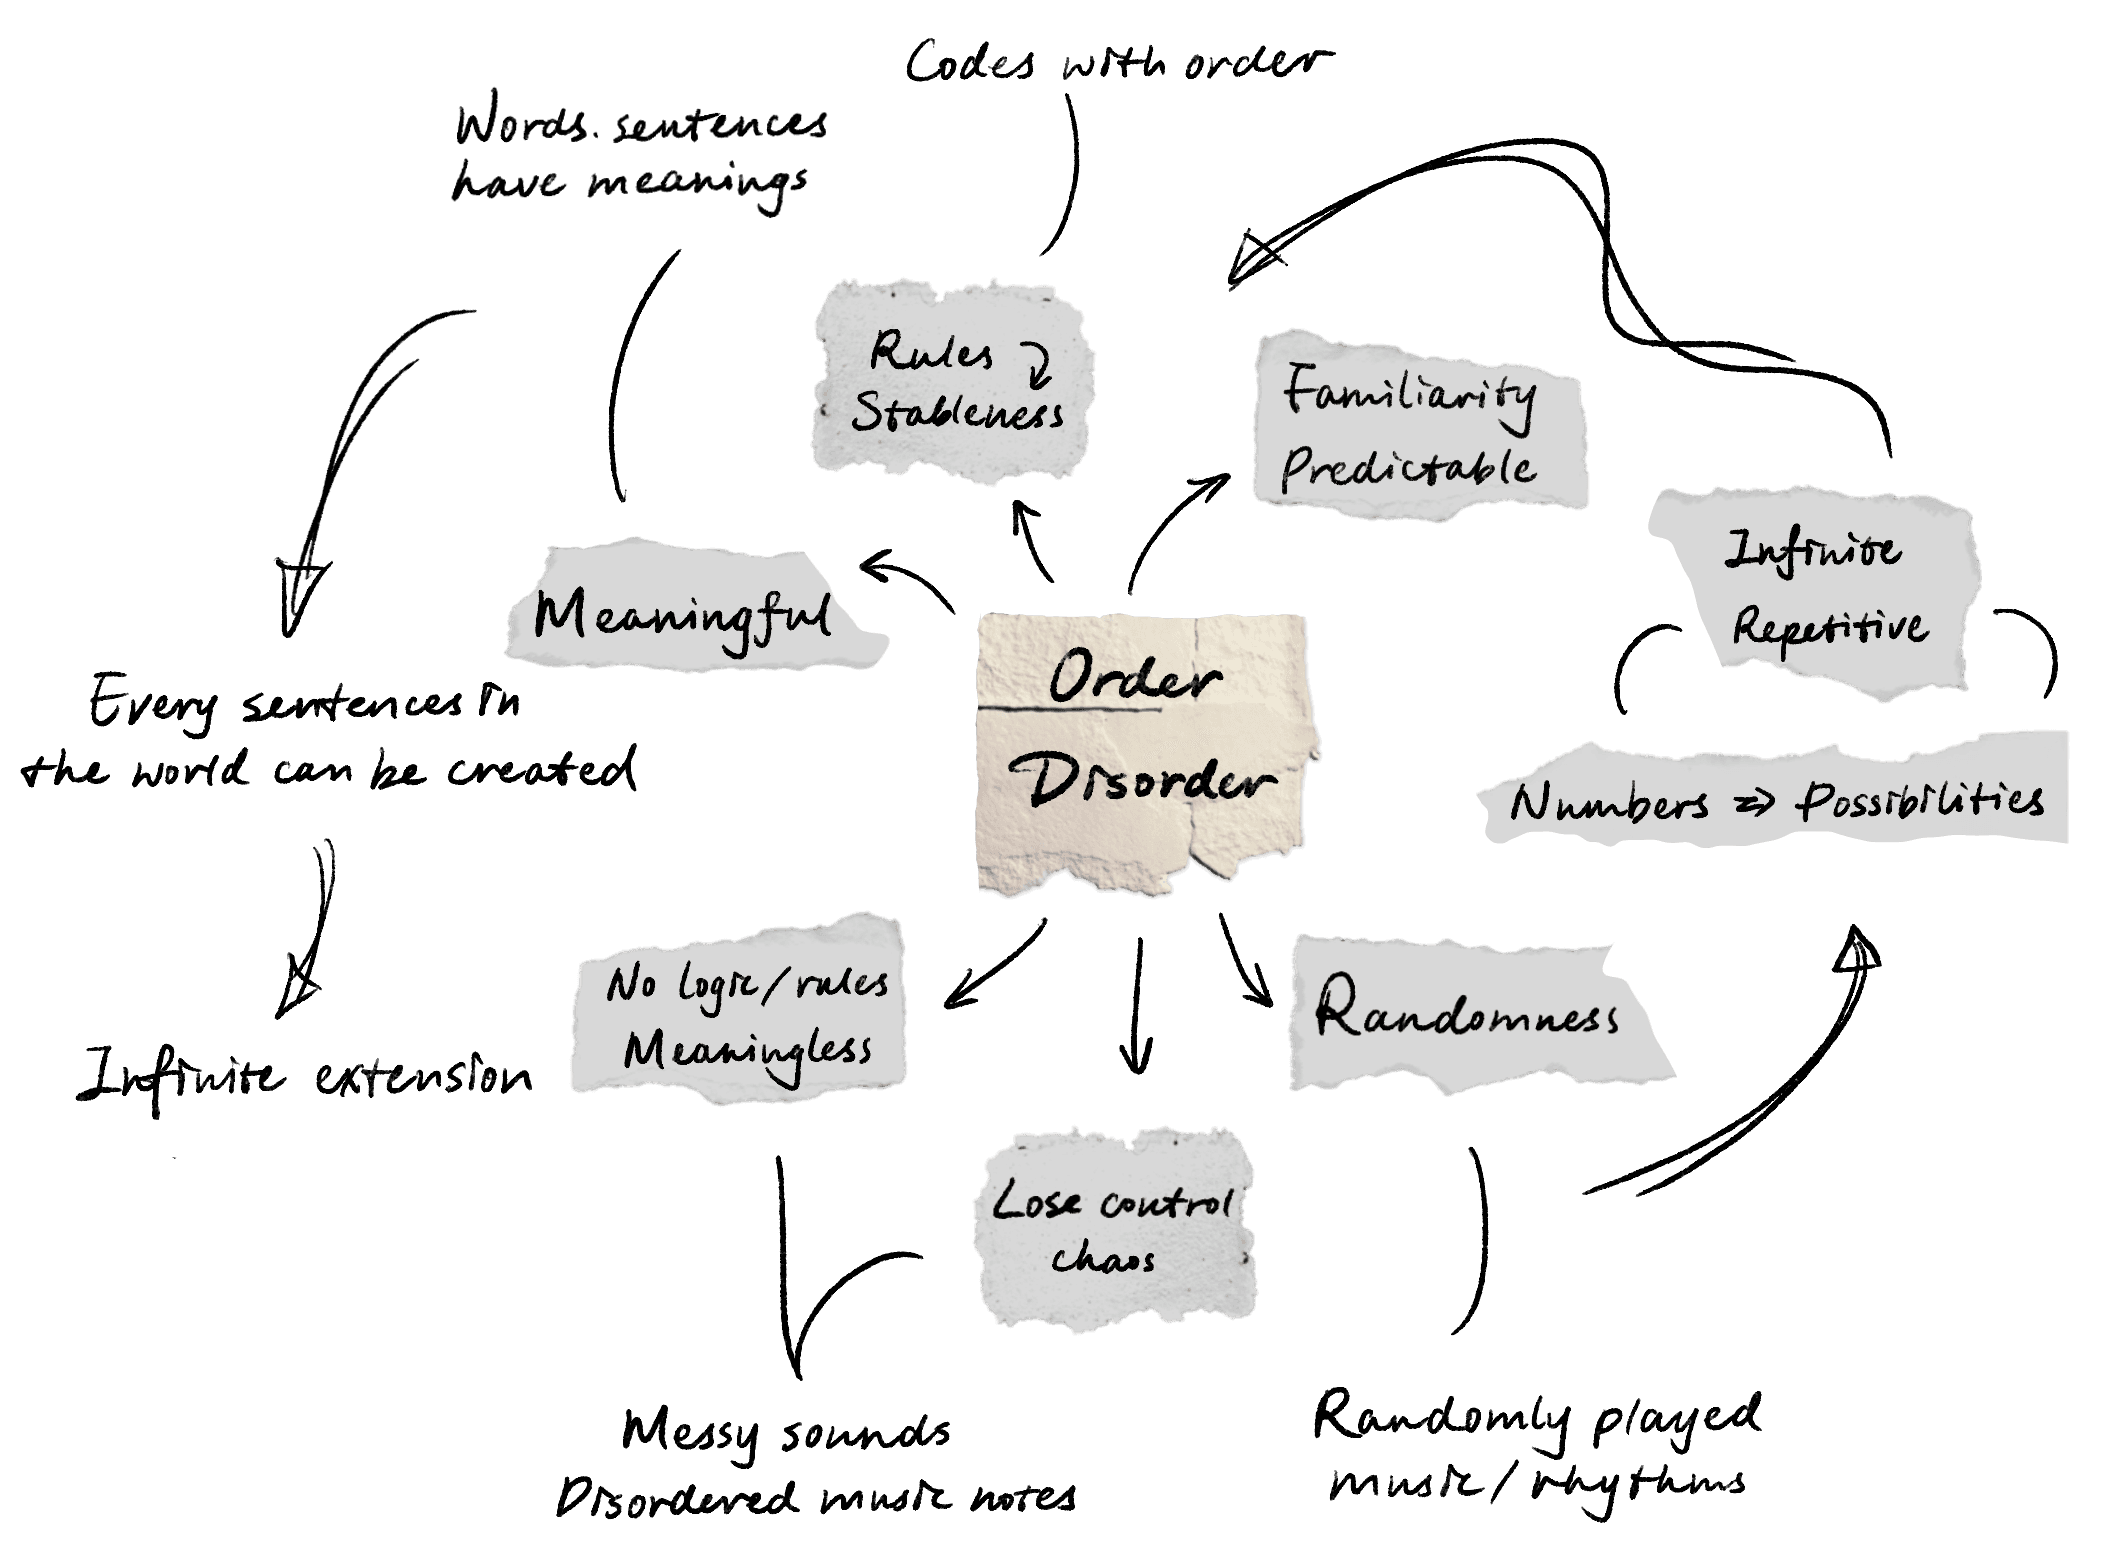 Codes with order
Words. sentences
have meanings
Rules
Stableness
Familiarity
Predictable
Infinite
Repetitive
Meaningful
Order
Disorder
Every sentences in
the world can be created
Numbers ⇒ Possibilities
No logic/rules
Meaningless
Randomness
Infinite extension
Lose control
chaos
Messy sounds
Disordered music notes
Randomly played
music/rhythms